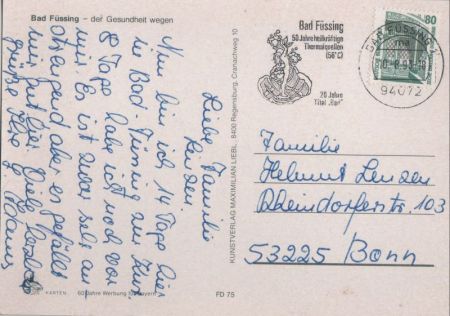 Bad Füssing – der Gesundheit wegen
Liebe Familie
Lenzen.
Nun bin ich 14 Tage hier
in Bad-Füssing zur Kur
8 Tage habe ich noch vor
mir. Es ist zwar sehr an
strengend aber es gefällt
mir gut hier. Viele
Grüße Ihre
KARTEN
60 Jahre Werbung für Bayern
FD 75
KUNSTVERLAG MAXIMILIAN LIEBL, 8400 Regensburg, Cranachweg 10
Bad Füssing
50 Jahre heilkräftige
Thermalquellen
(56°C)
20 Jahre
Titel „Bad"
BAD FÜSSING 1
94072
80
Familie
Helmut Lenzen
Rheindorferstr. 103
53225 Bonn